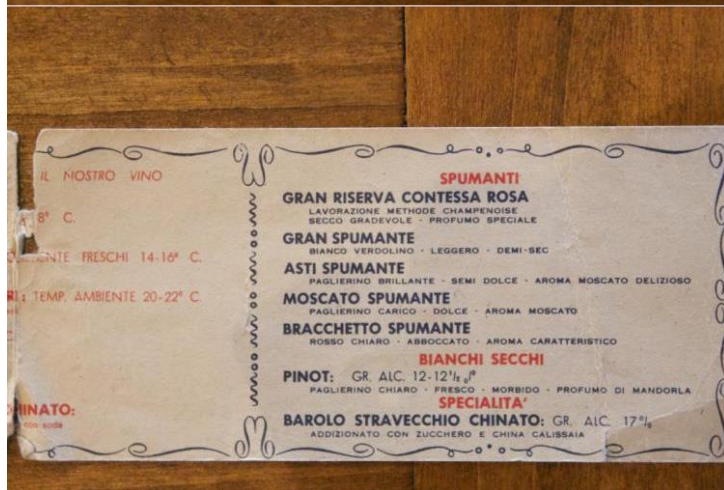 IL NOSTRO VINO
8° C.
FRESCHI 14-16° C.
TEMP. AMBIENTE 20-22° C.
con soda
SPUMANTI
GRAN RISERVA CONTESSA ROSA
LAVORAZIONE METHODE CHAMPENOISE
SECCO GRADEVOLE - PROFUMO SPECIALE
GRAN SPUMANTE
BIANCO VERDOLINO - LEGGERO - DEMI-SEC
ASTI SPUMANTE
PAGLIERINO BRILLANTE - SEMI DOLCE - AROMA MOSCATO DELIZIOSO
MOSCATO SPUMANTE
PAGLIERINO CARICO - DOLCE - AROMA MOSCATO
BRACCHETTO SPUMANTE
ROSSO CHIARO - ABBOCCATO - AROMA CARATTERISTICO
BIANCHI SECCHI
PINOT: GR. ALC. 12-12½ %
PAGLIERINO CHIARO - FRESCO - MORBIDO - PROFUMO DI MANDORLA
SPECIALITA'
BAROLO STRAVECCHIO CHINATO: GR. ALC. 17%
ADDIZIONATO CON ZUCCHERO E CHINA CALISSAIA